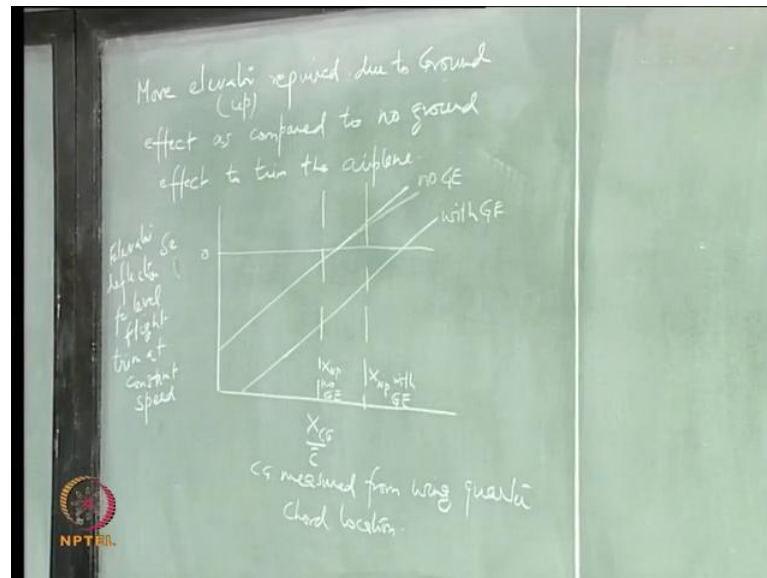 More elevator required due to Ground
(up)
effect as compared to no ground
effect to trim the airplane.
no GE
with GE
Elevator δe
deflection
to level
flight
trim at
constant
speed
0
XNP
no
GE
XNP with
GE
XCG
c̄
CG measured from wing quarter
chord location.
NPTEL